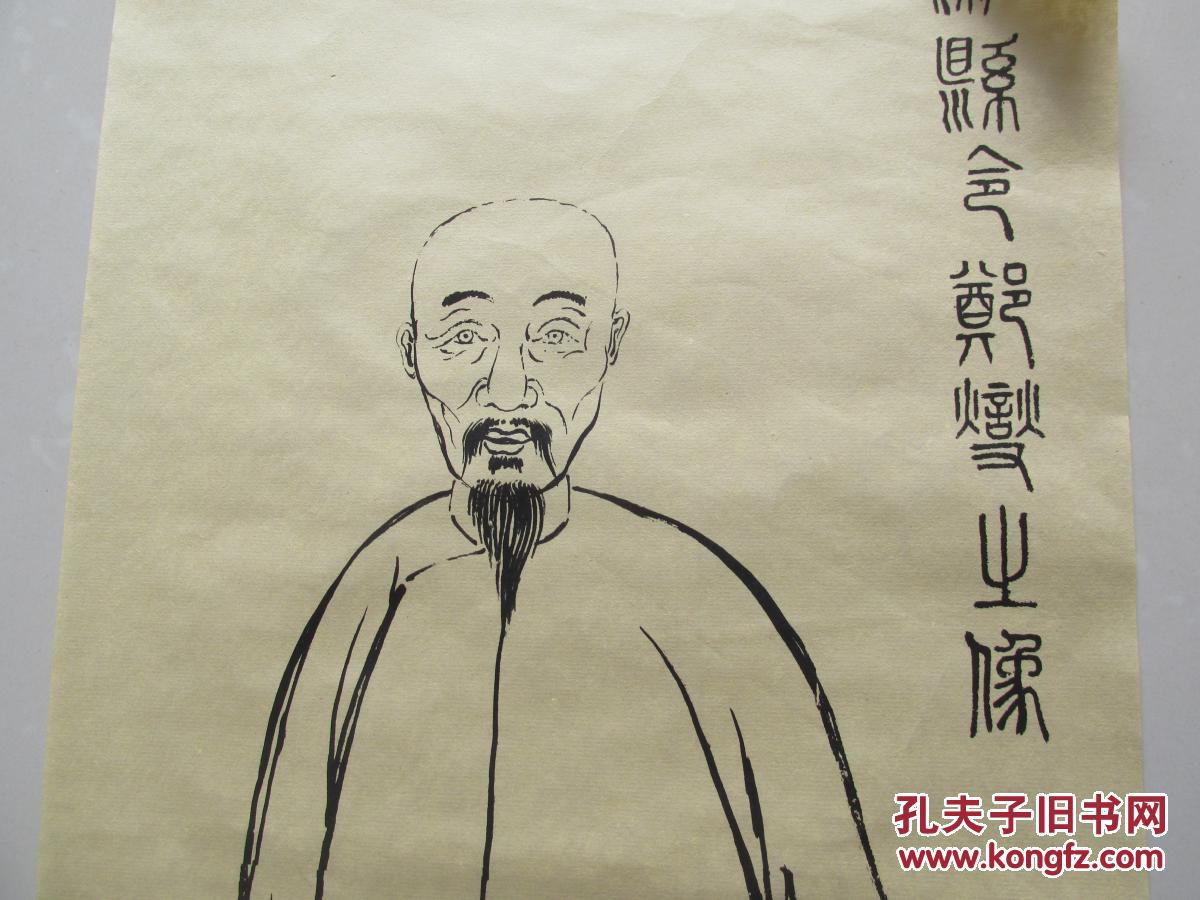 縣令鄭燮之像
孔夫子旧书网
www.kongfz.com